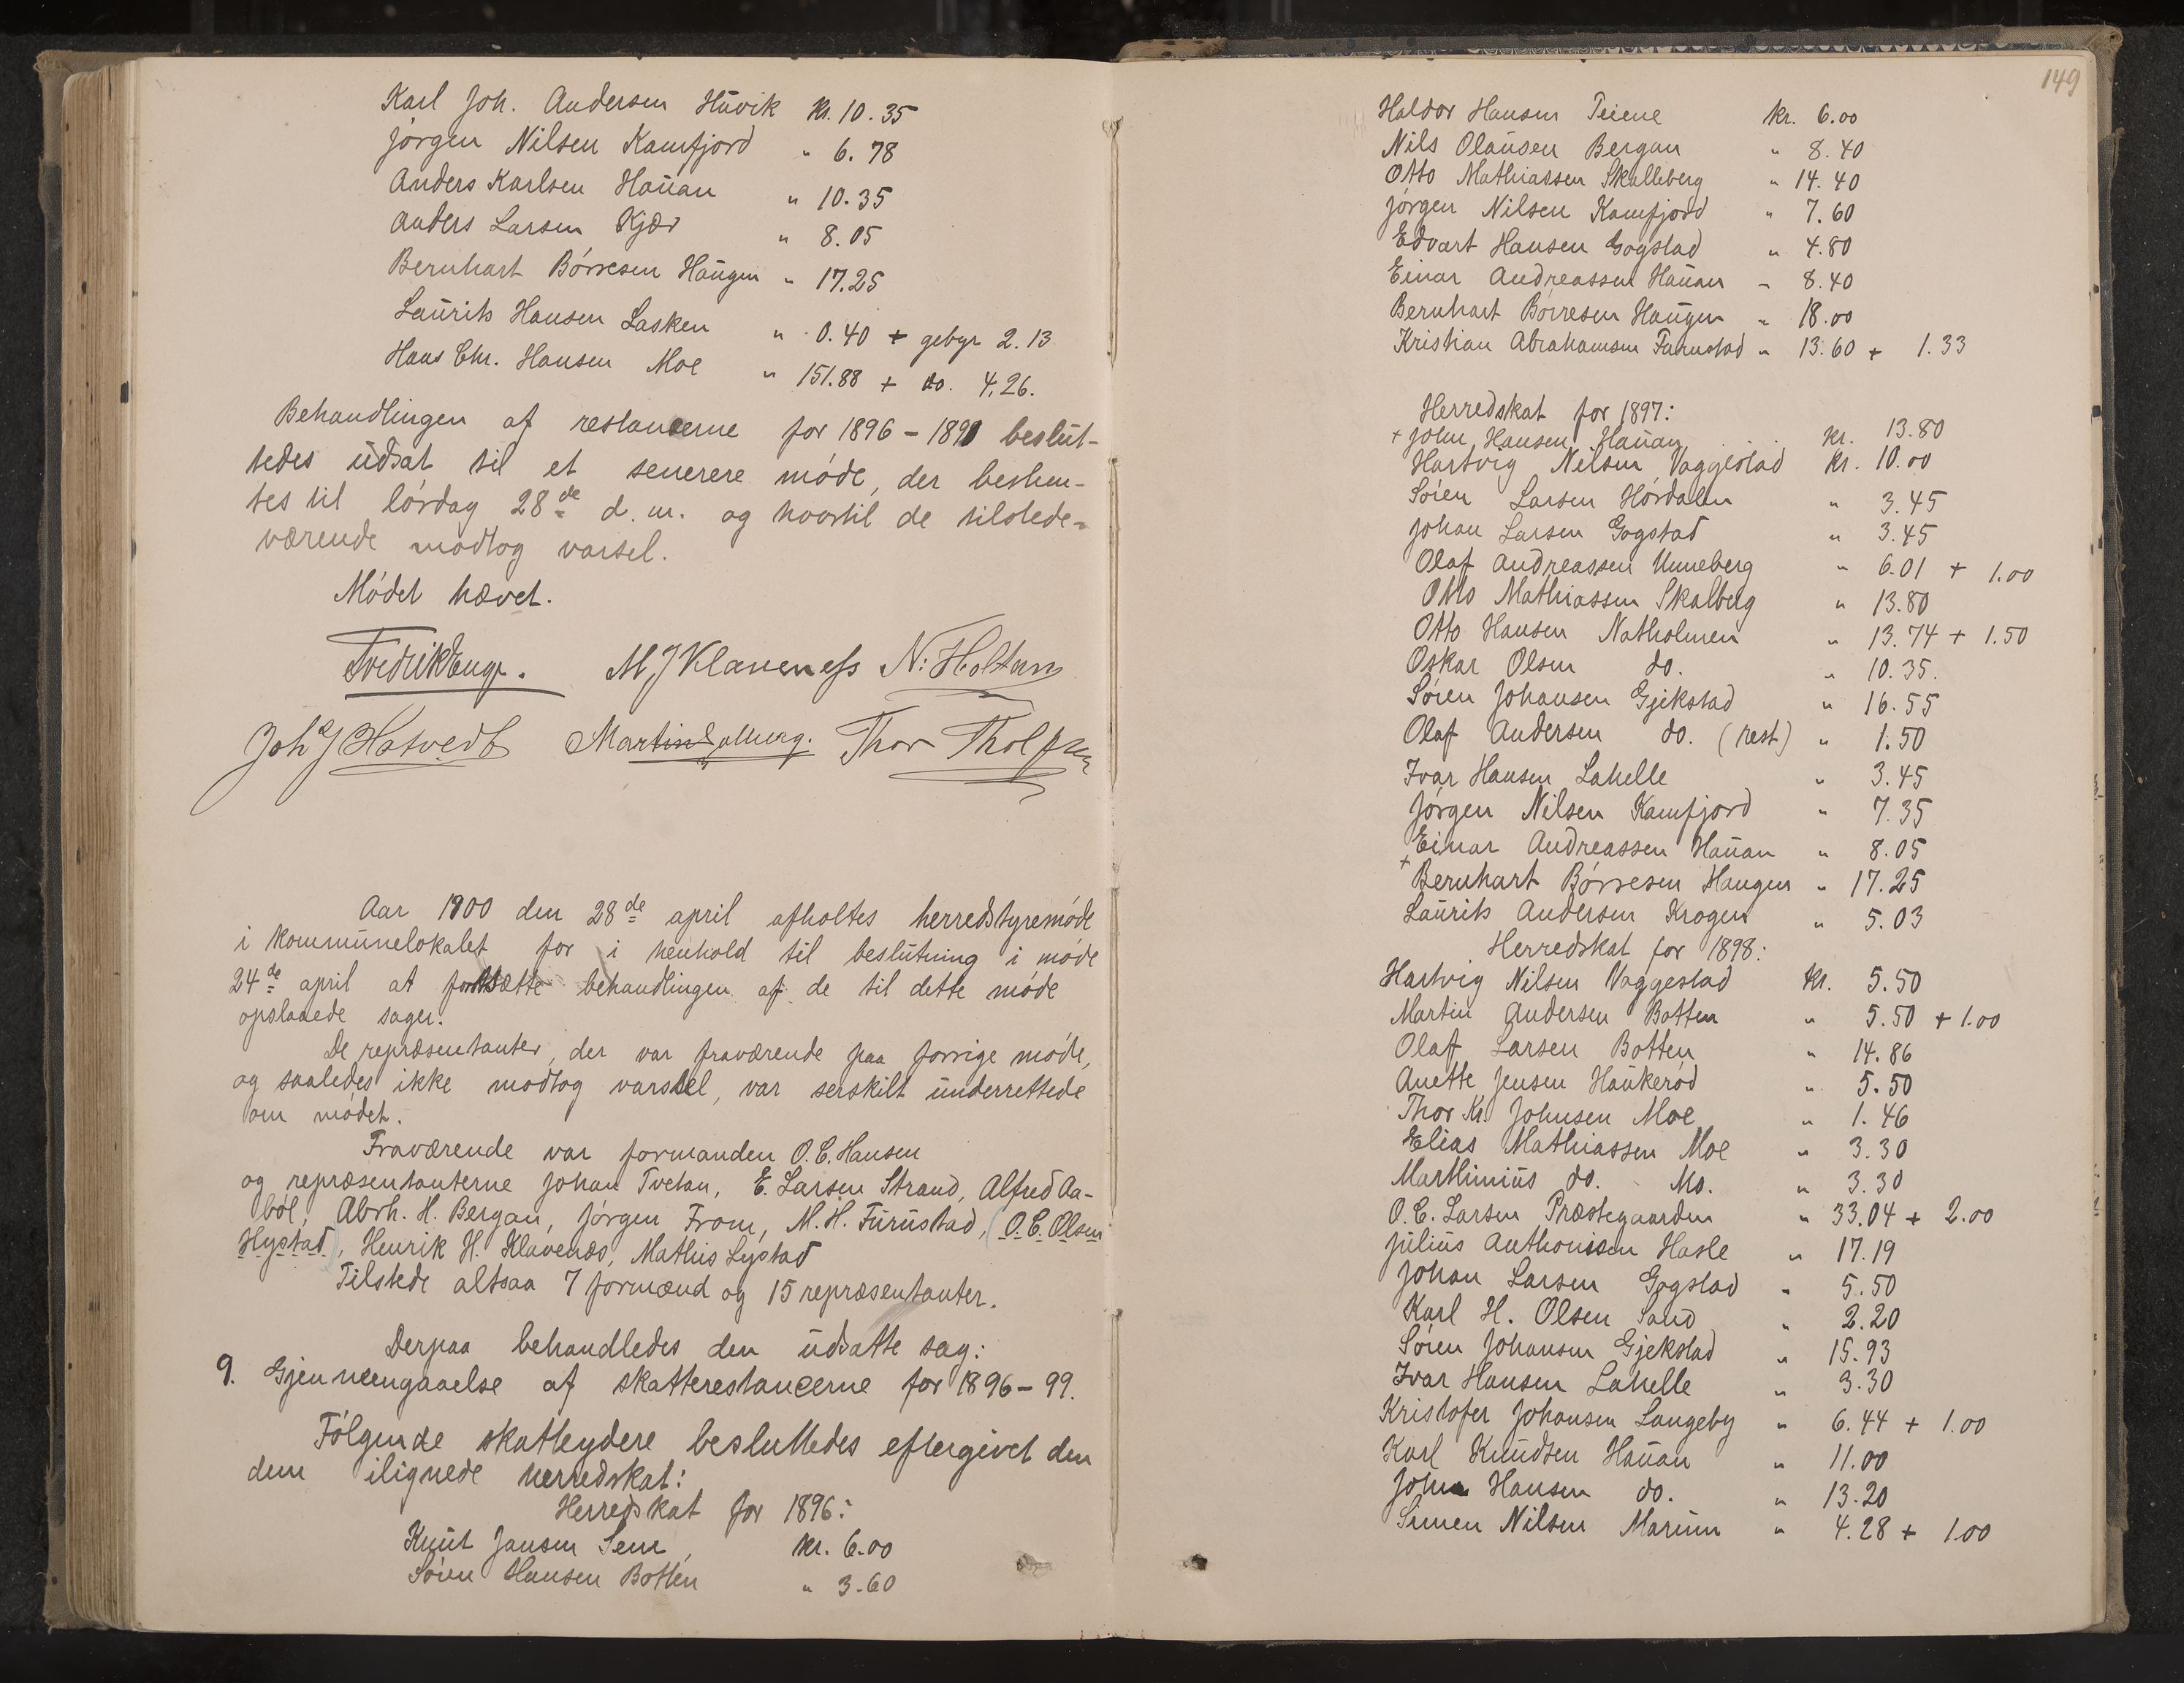 Karl Joh. Andersen Huvik kr. 10.35
Jørgen Nilsen Kamfjord " 6.78
Anders Karlsen Hauan " 10.35
Anders Larsen Kjær " 8.05
Bernhart Børresen Haugen " 17.25
Laurits Hansen Lasken " 0.40 + gebyr 2.13
Hans Chr. Hansen Moe " 151.88 + do. 4.26.
Behandlingen af restancerne for 1896 – 189 beslut-
tedes udsat til et senere møde, der bestem-
tes til lørdag 28de d.m. og hvortil de tilstede-
værende modtog varsel.
Mødet hævet.
FredrikEnge. M J Klaveness N: Holtan
Joh J Hotvedt Martin Thor Tholfsen
Aar 1900 den 28de april afholtes herredstyremøde
i kommunelokalet for i henhold til beslutning i møde
24de april at fortsætte behandlingen af de til dette møde
opslaaede sager.
De repræsentanter, der var fraværende paa forrige møde,
og saaledes ikke modtog varsel, var serskilt underrettede
om mødet.
Fraværende var formanden O.C. Hansen
og repræsentanterne Johan Tvetan, E. Larsen Strand, Alfred Aa-
bøl, Abrh. H. Bergan, Jørgen From, M.H. Furustad, (O.C. Olsen
Hystad), Henrik H. Klavenæs, Mathis Lystad
Tilstede altsaa 7 formænd og 15 repræsentanter.
Derpaa behandledes den udsatte sag:
9. Gjennemgaaelse af skatterestancerne for 1896–99.
Følgende skatteydere besluttedes eftergivet den
dem ilignede herredskat:
Herredskat for 1896:
Knut Jansen Sem, kr. 6.00
Søren Hansen Botten " 3.60
149
Haldor Hansen Teiene kr. 6.00
Nils Olausen Bergan " 8.40
Otto Mathiassen Skalleberg " 14.40
Jørgen Nilsen Kamfjord " 7.60
Edvart Hansen Gogstad " 4.80
Einar Andreassen Hauan " 8.40
Bernhart Børresen Haugen " 18.00
Kristian Abrahamsen Furustad " 13.60 + 1.33
Herredskat for 1897:
+ John Hansen Hauan kr. 13.80
Hartvig Nilsen Vaggestad kr. 10.00
Søren Larsen Hørdalen " 3.45
Johan Larsen Gogstad " 3.45
Olaf Andreassen Unneberg " 6.01 + 1.00
Otto Mathiassen Skalberg " 13.80
Otto Hansen Natholmen " 13.74 + 1.50
Oskar Olsen do. " 10.35.
Søren Johansen Gjekstad " 16.55
Olaf Andersen do. (rest) " 1.50
Ivar Hansen Lahelle " 3.45
Jørgen Nilsen Kamfjord " 7.35
Einar Andreassen Hauan " 8.05
+ Bernhart Børresen Haugen " 17.25
Laurits Andersen Krogen " 5.03
Herredskat for 1898:
Hartvig Nilsen Vaggestad kr. 5.50
Martin Andersen Botten " 5.50 + 1.00
Olaf Larsen Botten " 14.86
Anette Jensen Haukerød " 5.50
Thor Kr. Johnsen Moe " 1.46
Elias Mathiassen Moe " 3.30
Marthinius do. Mo. " 3.30
O.C. Larsen Præstegaarden " 33.04 + 2.00
Julius Anthonisen Hasle " 17.19
Johan Larsen Gogstad " 5.50
Karl H. Olsen Sand " 2.20
Søren Johansen Gjekstad " 15.93
Ivar Hansen Lahelle " 3.30
Kristofer Johansen Langeby " 6.44 + 1.00
Karl Knudsen Hauan " 11.00
John Hansen do. " 13.20
Simen Nilsen Marum " 4.28 + 1.00